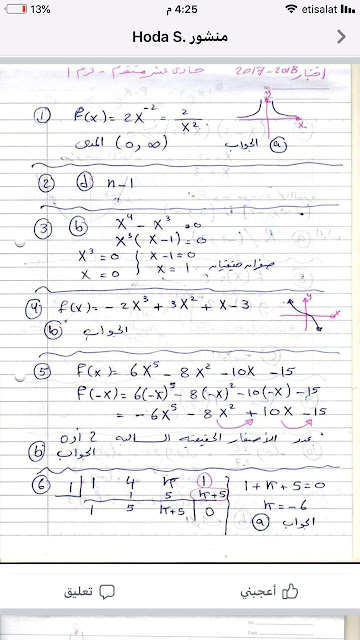 13% 4:25 م etisalat
منشور .Hoda S
اختبار 2018-2017 حادي عشر متقدم -
① f(x) = 2x⁻² = 2/x²
المدى (0, ∞) الجواب ⓐ
② ⓓ n-1
③ ⓑ x⁴ - x³ = 0
x³(x-1) = 0
x³ = 0 } x-1 = 0
x = 0 } x = 1 صفران حقيقيان
④ f(x) = -2x³ + 3x² + x - 3
الجواب ⓑ
⑤ f(x) = 6x⁵ - 8x² - 10x - 15
f(-x) = 6(-x)⁵ - 8(-x)² - 10(-x) - 15
= -6x⁵ - 8x² + 10x - 15
عدد الأصفار الحقيقية السالبة 2 أو 0
الجواب ⓑ
⑥ 1 | 1 4 k 1 } 1 + k + 5 = 0
1 5 k+5 } k = -6
1 5 k+5 | 0 الجواب ⓐ
أعجبني تعليق